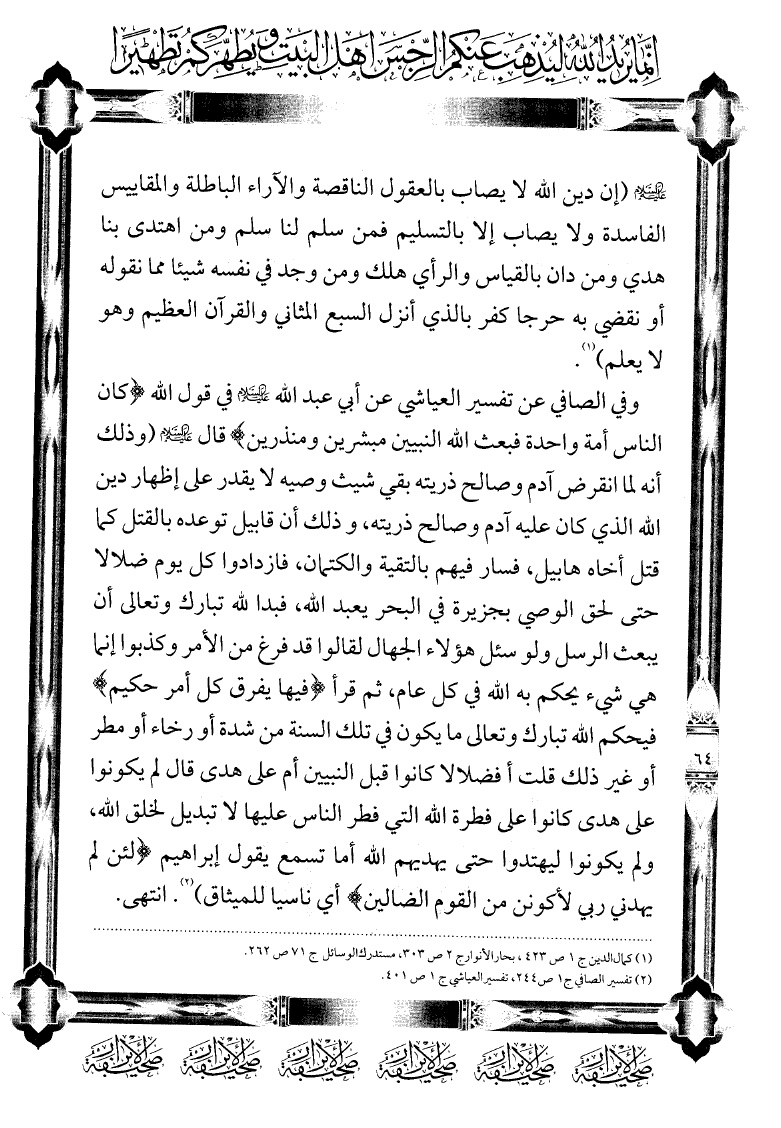 إنما يريد الله ليذهب عنكم الرجس أهل البيت ويطهركم تطهيرا
عليه السلام (إن دين الله لا يصاب بالعقول الناقصة والآراء الباطلة والمقاييس
الفاسدة ولا يصاب إلا بالتسليم فمن سلم لنا سلم ومن اهتدى بنا
هدي ومن دان بالقياس والرأي هلك ومن وجد في نفسه شيئا مما نقوله
أو نقضي به حرجا كفر بالذي أنزل السبع المثاني والقرآن العظيم وهو
لا يعلم)(١).
وفي الصافي عن تفسير العياشي عن أبي عبد الله عليه السلام في قول الله ﴿كان
الناس أمة واحدة فبعث الله النبيين مبشرين ومنذرين﴾ قال عليه السلام (وذلك
أنه لما انقرض آدم وصالح ذريته بقي شيث وصيه لا يقدر على إظهار دين
الله الذي كان عليه آدم وصالح ذريته، و ذلك أن قابيل توعده بالقتل كما
قتل أخاه هابيل، فسار فيهم بالتقية والكتمان، فازدادوا كل يوم ضلالا
حتى لحق الوصي بجزيرة في البحر يعبد الله، فبدا لله تبارك وتعالى أن
يبعث الرسل ولو سئل هؤلاء الجهال لقالوا قد فرغ من الأمر وكذبوا إنما
هي شيء يحكم به الله في كل عام، ثم قرأ ﴿فيها يفرق كل أمر حكيم﴾
فيحكم الله تبارك وتعالى ما يكون في تلك السنة من شدة أو رخاء أو مطر
أو غير ذلك قلت أ فضلالا كانوا قبل النبيين أم على هدى قال لم يكونوا
على هدى كانوا على فطرة الله التي فطر الناس عليها لا تبديل لخلق الله،
ولم يكونوا ليهتدوا حتى يهديهم الله أما تسمع يقول إبراهيم ﴿لئن لم
يهدني ربي لأكونن من القوم الضالين﴾ أي ناسيا للميثاق)(٢). انتهى.
٦٤
(١) كمال الدين ج ١ ص ٤٢٣ ، بحار الأنوار ج ٢ ص ٣٠٣، مستدرك الوسائل ج ٧١ ص ٢٦٢.
(٢) تفسير الصافي ج١ ص ٢٤٤، تفسير العياشي ج ١ ص ٤٠١.
صحيفة الأبرار صحيفة الأبرار صحيفة الأبرار صحيفة الأبرار صحيفة الأبرار صحيفة الأبرار